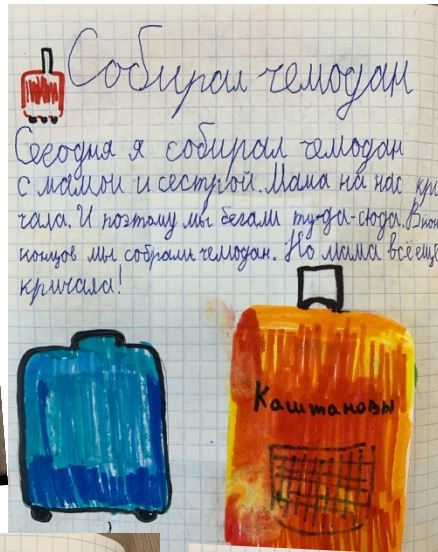 Собирал чемодан
Сегодня я собирал чемодан
с мамой и сестрой. Мама на нас кри
чала. И поэтому мы бегали туда-сюда. В кон
концов мы собрали чемодан. Но мама всё ещё
кричала!
Каштановы